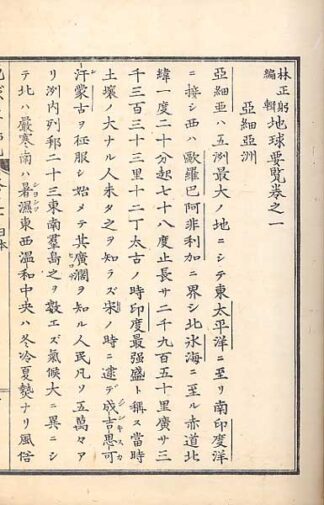 林正躬編輯 地球要覽卷之一
亞細亞洲
亞細亞ハ五洌最大ノ地ニシテ東太平洋ニ至リ南印度洋
ニ接シ西ハ歐羅巴阿非利加ニ界シ北氷海ニ至ル赤道北
緯一度二十分起七十八度止長サ二千九百五十里廣サ三
千三百三十三里十二丁太古ノ時印度最强盛ト稱ス當時
土壤ノ大ナル人未タ之ヲ知ラズ宋ノ時ニ逮デ成吉思可
汗蒙古ヲ征服シ始メテ其廣濶ヲ知ル人民凡ソ五萬々ア
リ洌内列邦二十三東南羣島之ヲ數エズ氣候大ニ異ニシ
テ北ハ嚴寒南ハ暑濕東西溫和中央ハ冬冷夏熱ナリ風俗